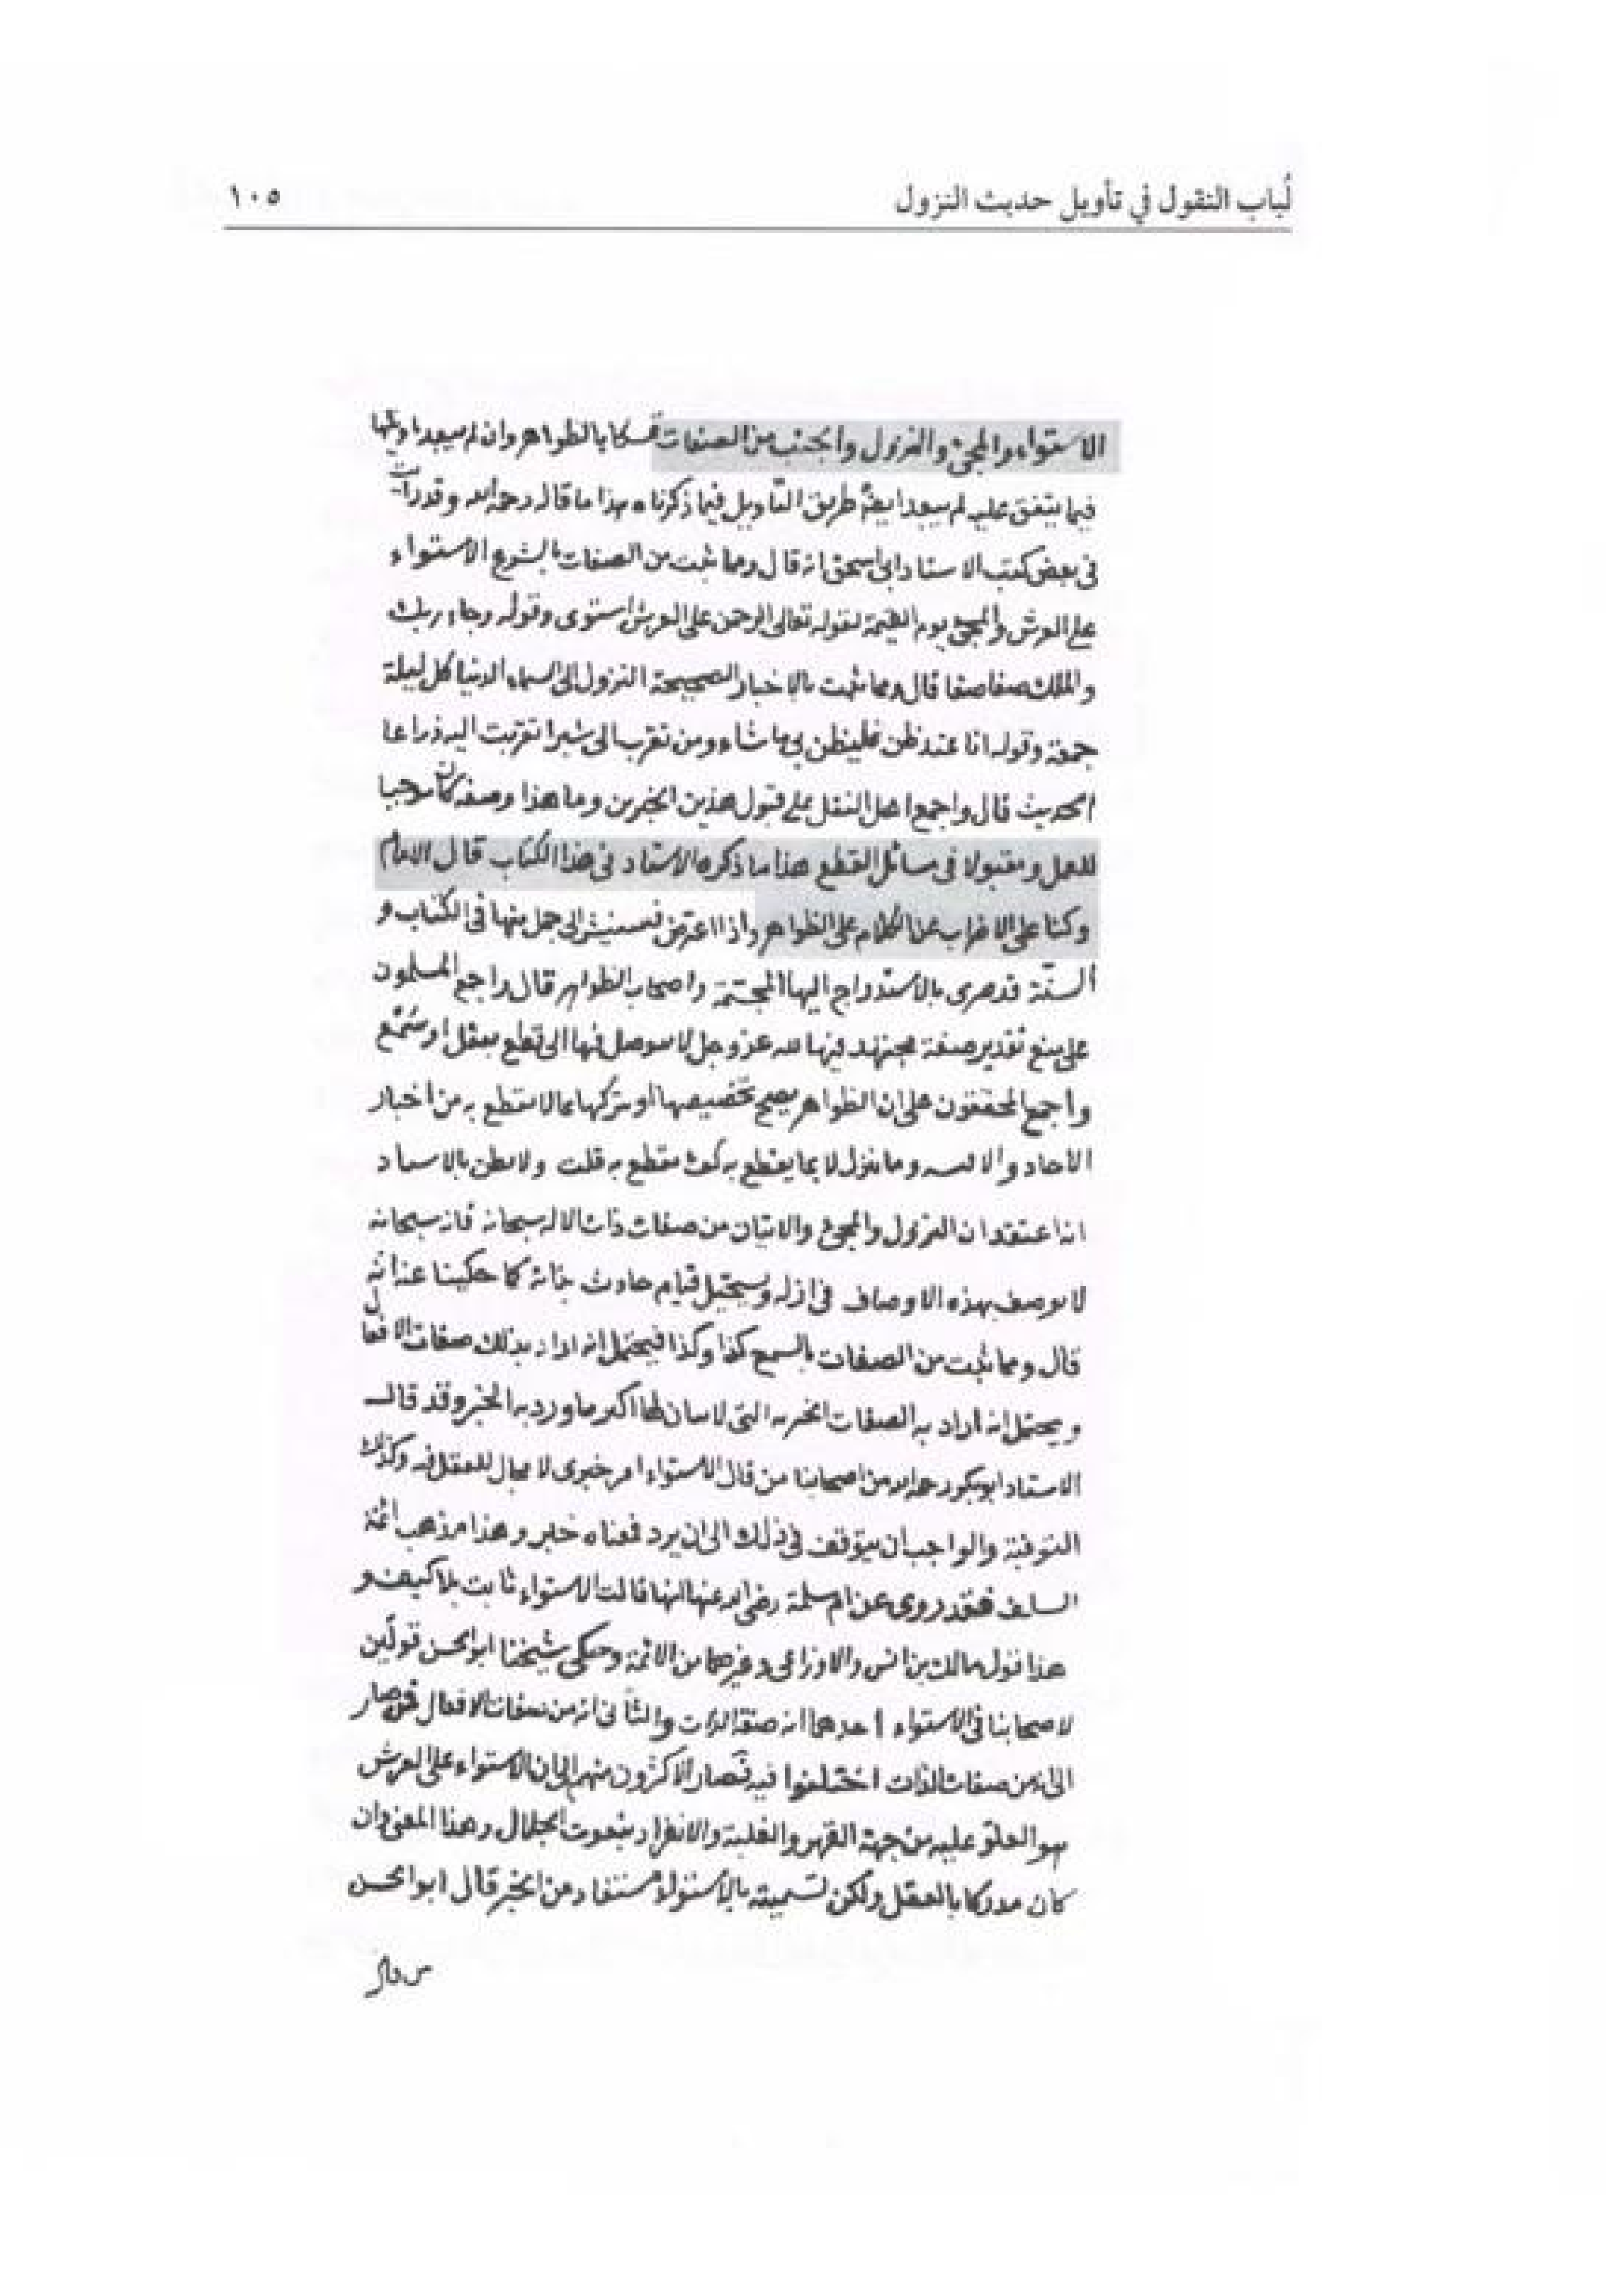 لُباب النقول في تأويل حديث النزول ١٠٥
الاستواء والمجئ والنزول والجنب من الصفات تمسكا بالظواهر وان لم يبعد تاويلها
فيما يتفق عليه لم يبعد ايضا طريق التأويل فيما ذكرناه هذا ما قال رحمه الله وقد رأيت
فى بعض كتب الاستاد ابى اسحق انه قال ومما ثبت من الصفات بالشرع الاستواء
على العرش والمجئ يوم القيمة لقوله تعالى الرحمن على العرش استوى وقوله وجاء ربك
والملك صفا صفا قال ومما ثبت بالاخبار الصحيحة النزول الى السماء الدنيا كل ليلة
جمعة وقوله انا عند ظن فليظن بى ما شاء ومن تقرب الى شبرا تقربت اليه ذراعا
الحديث قال واجمع اهل النقل على قبول هذين الخبرين وما هذا وصفه كان موجبا
للعمل ومقبولا فى مسائل القطع هذا ما ذكره الاستاد فى هذا الكتاب قال الامام
وكنا على الاضراب عن الكلام على الظواهر واذا اعترض فسنشير الى جمل منها فى الكتاب و
السنّة قد صرى بالاستدراج اليها المجسّمة واصحاب الظواهر قال واجمع المسلمون
على منع تقدير صفة مجتهد فيها لله عز وجل لا يتوصل فيها الى قطع بعقل او سمع
واجمع المحققون على ان الظواهر يصح تخصيصها او تركها بما لا يقطع به من اخبار
الاحاد والاقيسه وما نزل لا بما يقطع به كيف يقطع به قلت ولا يظن بالاستاد
انه اعتقد ان النزول والمجئ والاتيان من صفات ذات الاله سبحانه فانه سبحانه
لا يوصف بهذه الاوصاف فى ازله ويستحيل قيام حادث بذاته كما حكينا عنه انه
قال ومما ثبت من الصفات بالسمع كذا وكذا فيحتمل انه اراد بذلك صفات الافعال
ويحتمل انه اراد به الصفات الخبريه التى لا بيان لها اكثر مما ورد به الخبر وقد قال
الاستاد ابو بكر رحمه الله من اصحابنا من قال الاستواء امر خبرى لا مجال للعقل فيه وكذلك
الفوقية والواجب ان يتوقف فى ذلك الى ان يرد فى معناه خبر وهذا مذهب ائمة
السلف فقد روى عن ام سلمة رضى الله عنها انها قالت الاستواء ثابت بلا كيف و
هذا قول مالك بن انس والاوزاعى وغيرهما من الائمة وحكى شيخنا ابو الحسن قولين
لاصحابنا فى الاستواء احدهما انه صفة الذات والثانى انه من صفات الافعال فمن صار
الى انه من صفات الذات اختلفوا فيه فصار الاكثرون منهم الى ان الاستواء على العرش
هو العلوّ عليه من جهة القهر والغلبة والانفراد بنعوت الجلال وهذا المعنى وان
كان مدركا بالعقل ولكن تسميته بالاستواء مستفاد من الخبر قال ابو الحسن